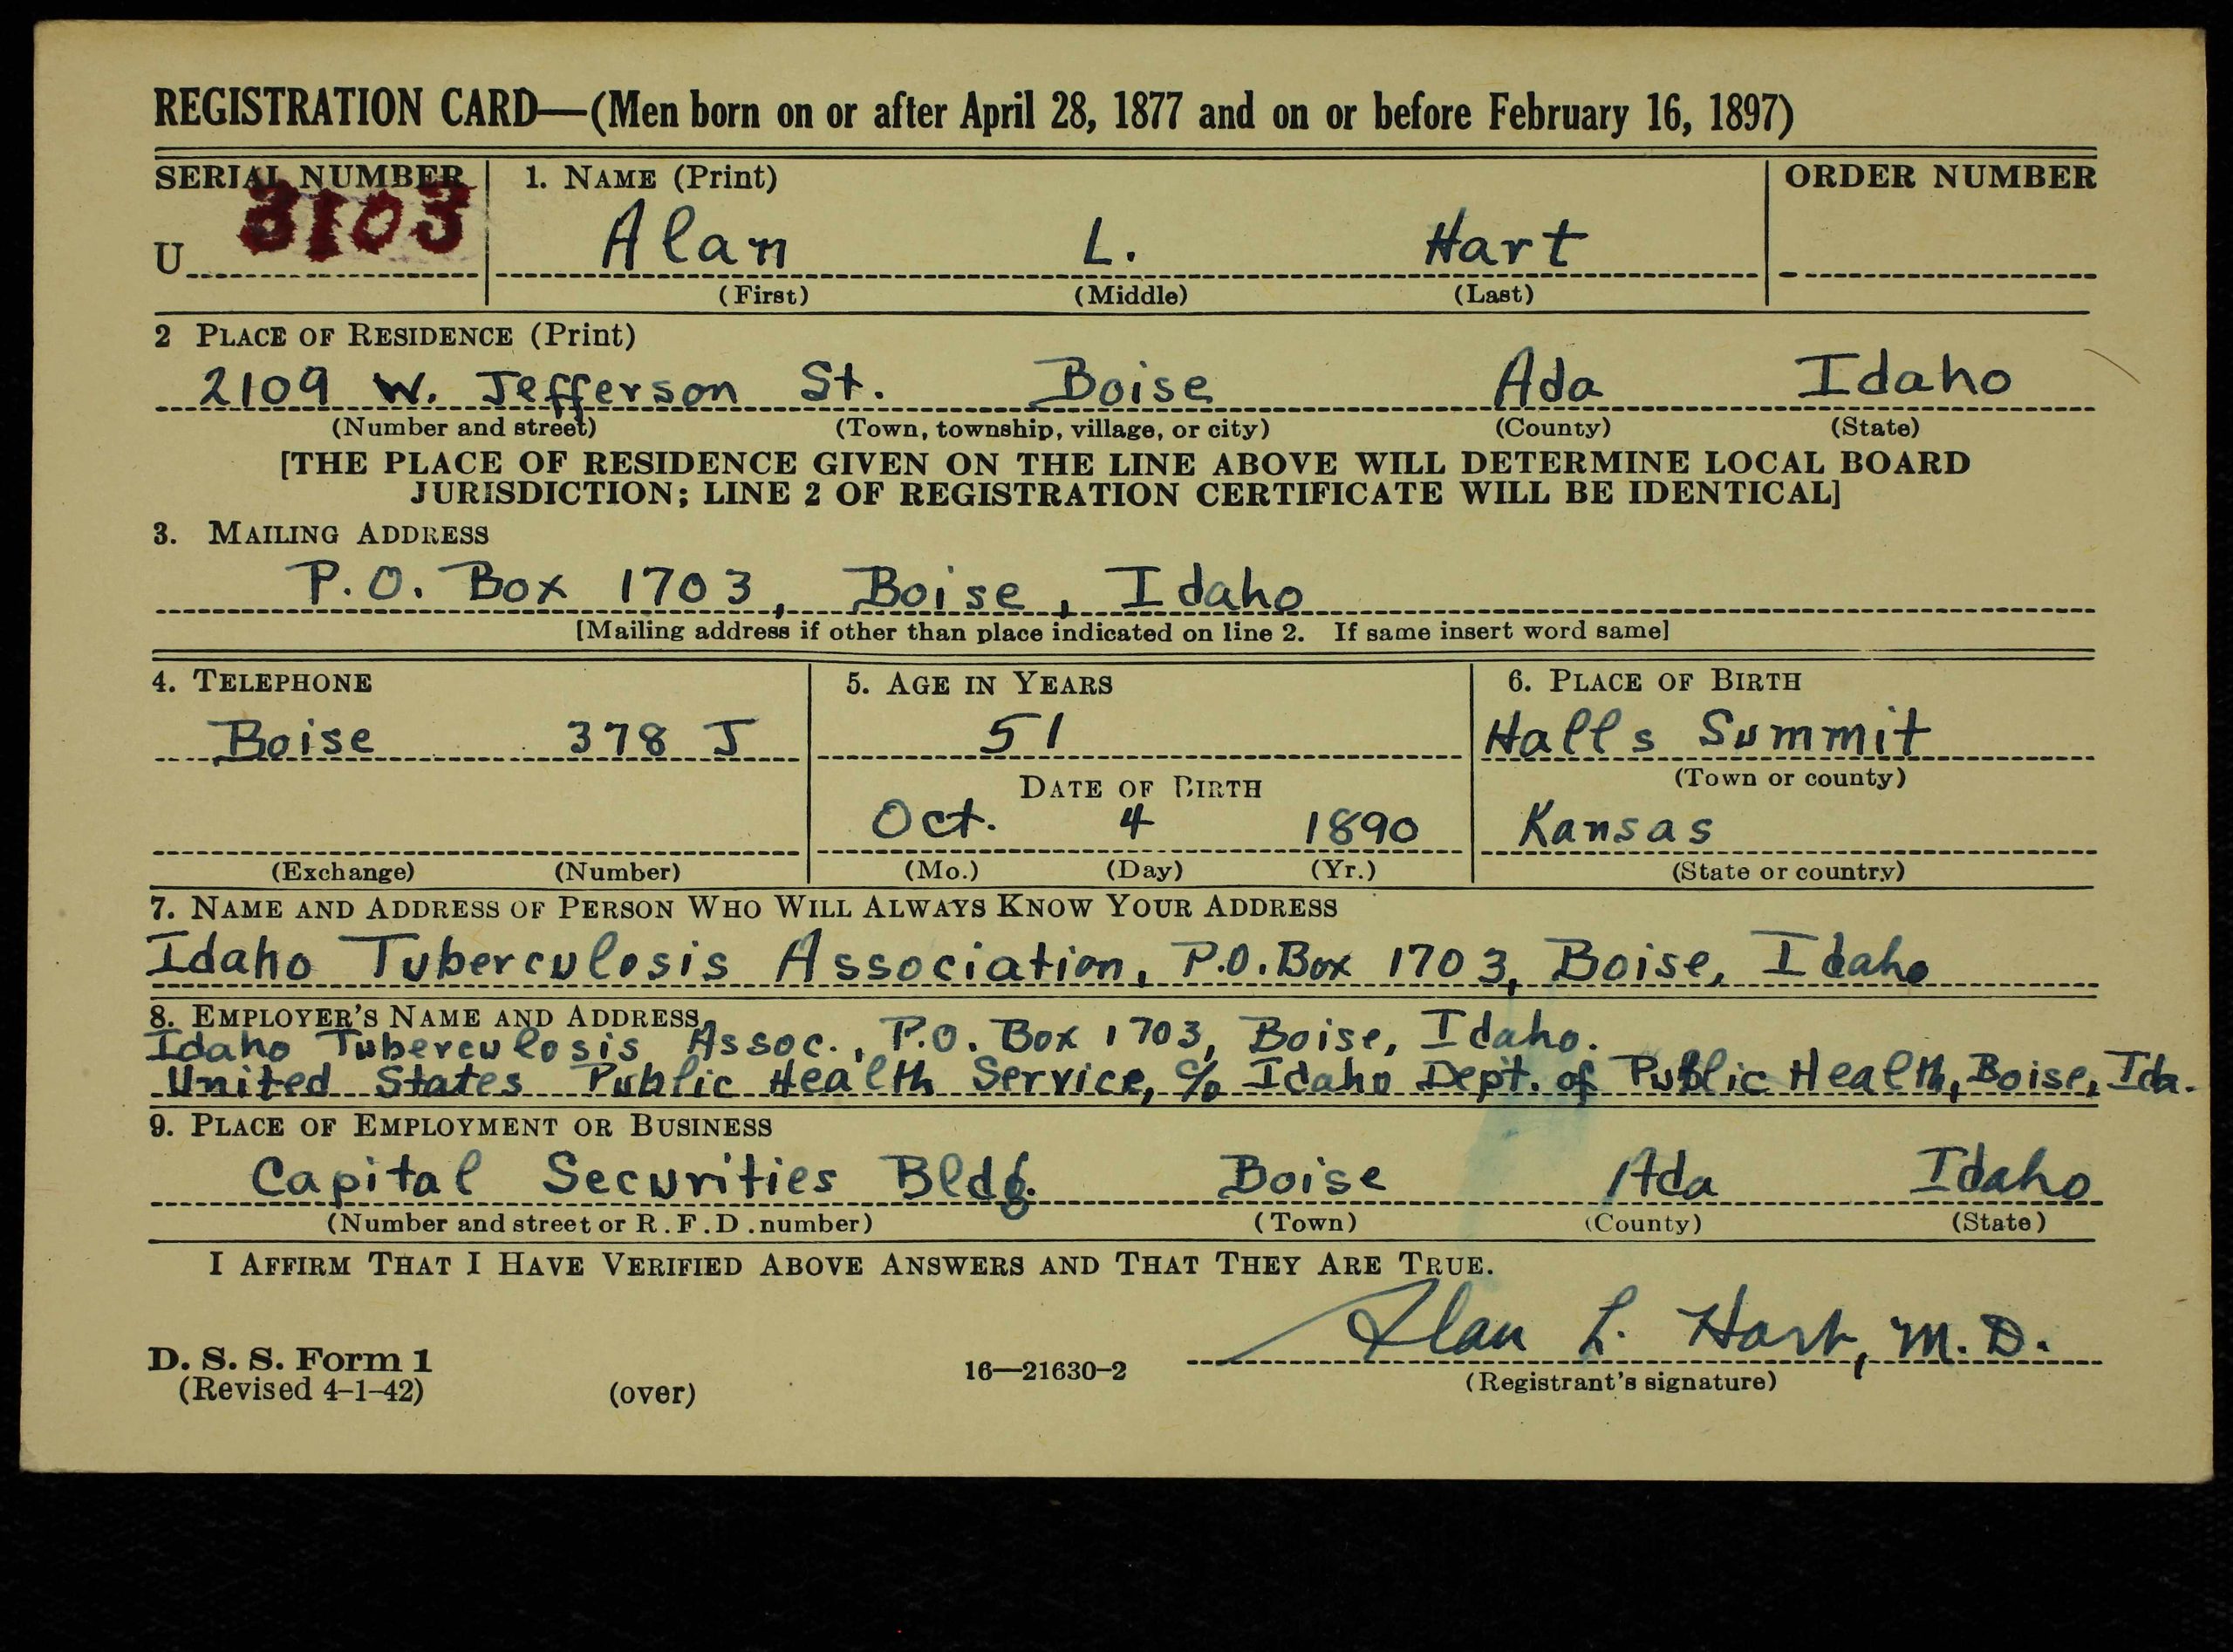 REGISTRATION CARD—(Men born on or after April 28, 1877 and on or before February 16, 1897)
SERIAL NUMBER 1. NAME (Print) ORDER NUMBER
U 3103 Alan L. Hart
(First) (Middle) (Last)
2 PLACE OF RESIDENCE (Print)
2109 W. Jefferson St. Boise Ada Idaho
(Number and street) (Town, township, village, or city) (County) (State)
[THE PLACE OF RESIDENCE GIVEN ON THE LINE ABOVE WILL DETERMINE LOCAL BOARD
JURISDICTION; LINE 2 OF REGISTRATION CERTIFICATE WILL BE IDENTICAL]
3. MAILING ADDRESS
P.O. Box 1703, Boise, Idaho
[Mailing address if other than place indicated on line 2. If same insert word same]
4. TELEPHONE 5. AGE IN YEARS 6. PLACE OF BIRTH
Boise 378 J 51 Halls Summit
(Town or county)
DATE OF BIRTH
Oct. 4 1890 Kansas
(Exchange) (Number) (Mo.) (Day) (Yr.) (State or country)
7. NAME AND ADDRESS OF PERSON WHO WILL ALWAYS KNOW YOUR ADDRESS
Idaho Tuberculosis Association, P.O. Box 1703, Boise, Idaho
8. EMPLOYER'S NAME AND ADDRESS
Idaho Tuberculosis Assoc., P.O. Box 1703, Boise, Idaho.
United States Public Health Service, c/o Idaho Dept. of Public Health, Boise, Ida.
9. PLACE OF EMPLOYMENT OR BUSINESS
Capital Securities Bldg. Boise Ada Idaho
(Number and street or R.F.D. number) (Town) (County) (State)
I AFFIRM THAT I HAVE VERIFIED ABOVE ANSWERS AND THAT THEY ARE TRUE.
Alan L. Hart, M.D.
D. S. S. Form 1 16—21630-2 (Registrant's signature)
(Revised 4-1-42) (over)